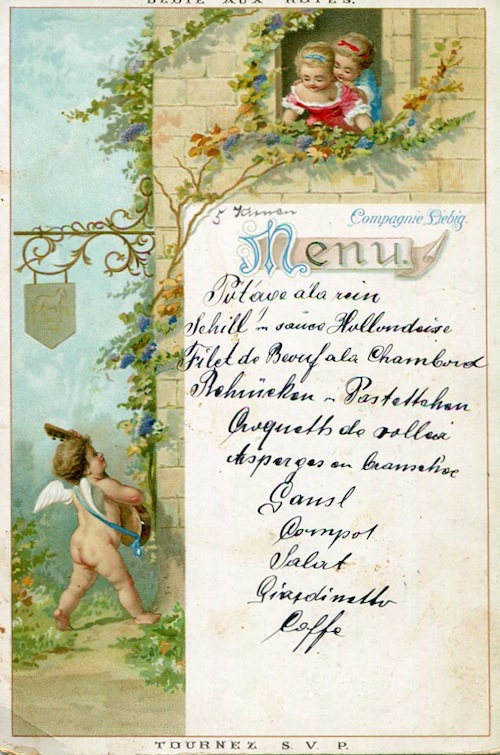 DÉDIÉ AUX HÔTES.
Compagnie Liebig.
Menu.
Potage a la rein
Schill in sauce Hollondaise
Filet de Beouf a la Chambord
Rehrücken u Pastettchen
Croquetts de
Asperges en
Gansl
Compot
Salat
Giardinetto
Caffe
TOURNEZ S. V. P.